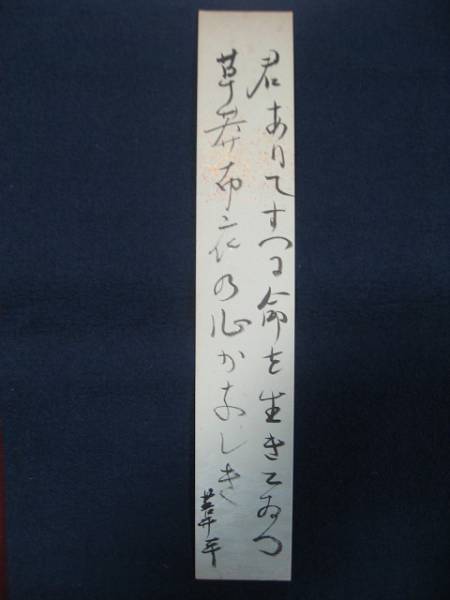 君ありてすつる命を生きてゐつ
草莽布衣の心かなしき
草平